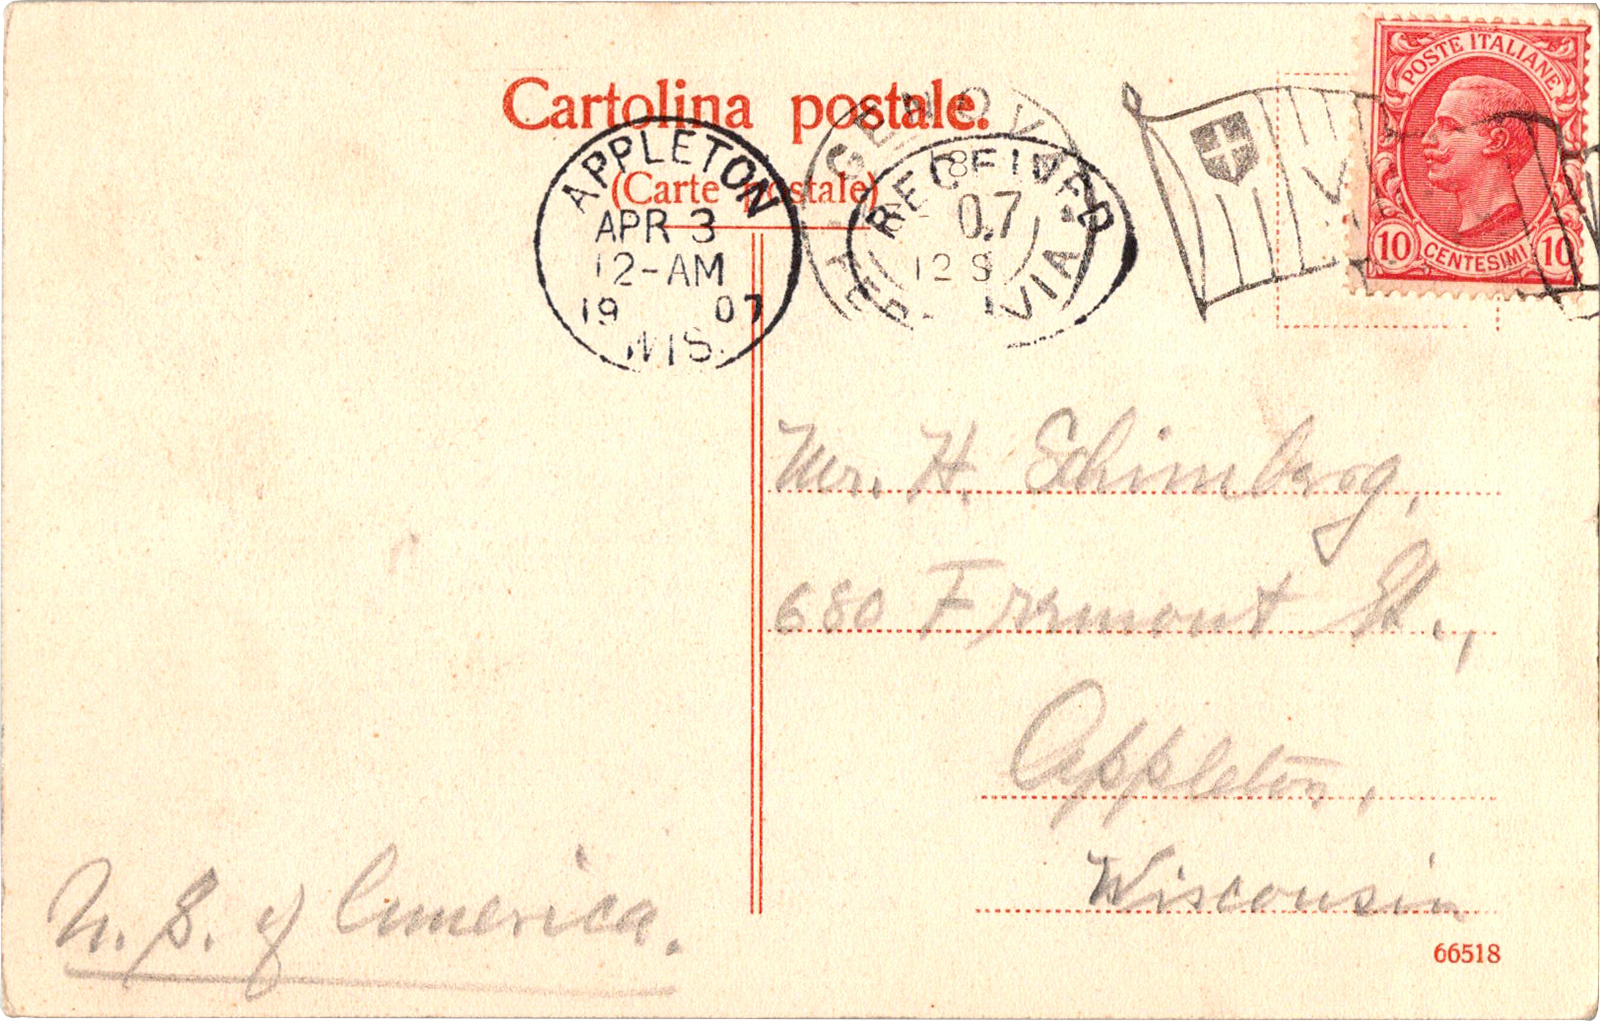 Cartolina postale.
(Carte postale)
POSTE ITALIANE
10 CENTESIMI 10
APPLETON
APR 3
12-AM
19 07
WIS.
GENOVA
RECEIVED
18
07
12 S
Mr. H. Schimberg,
680 Fremont St.,
Appleton,
Wisconsin
U. S. of America.
66518